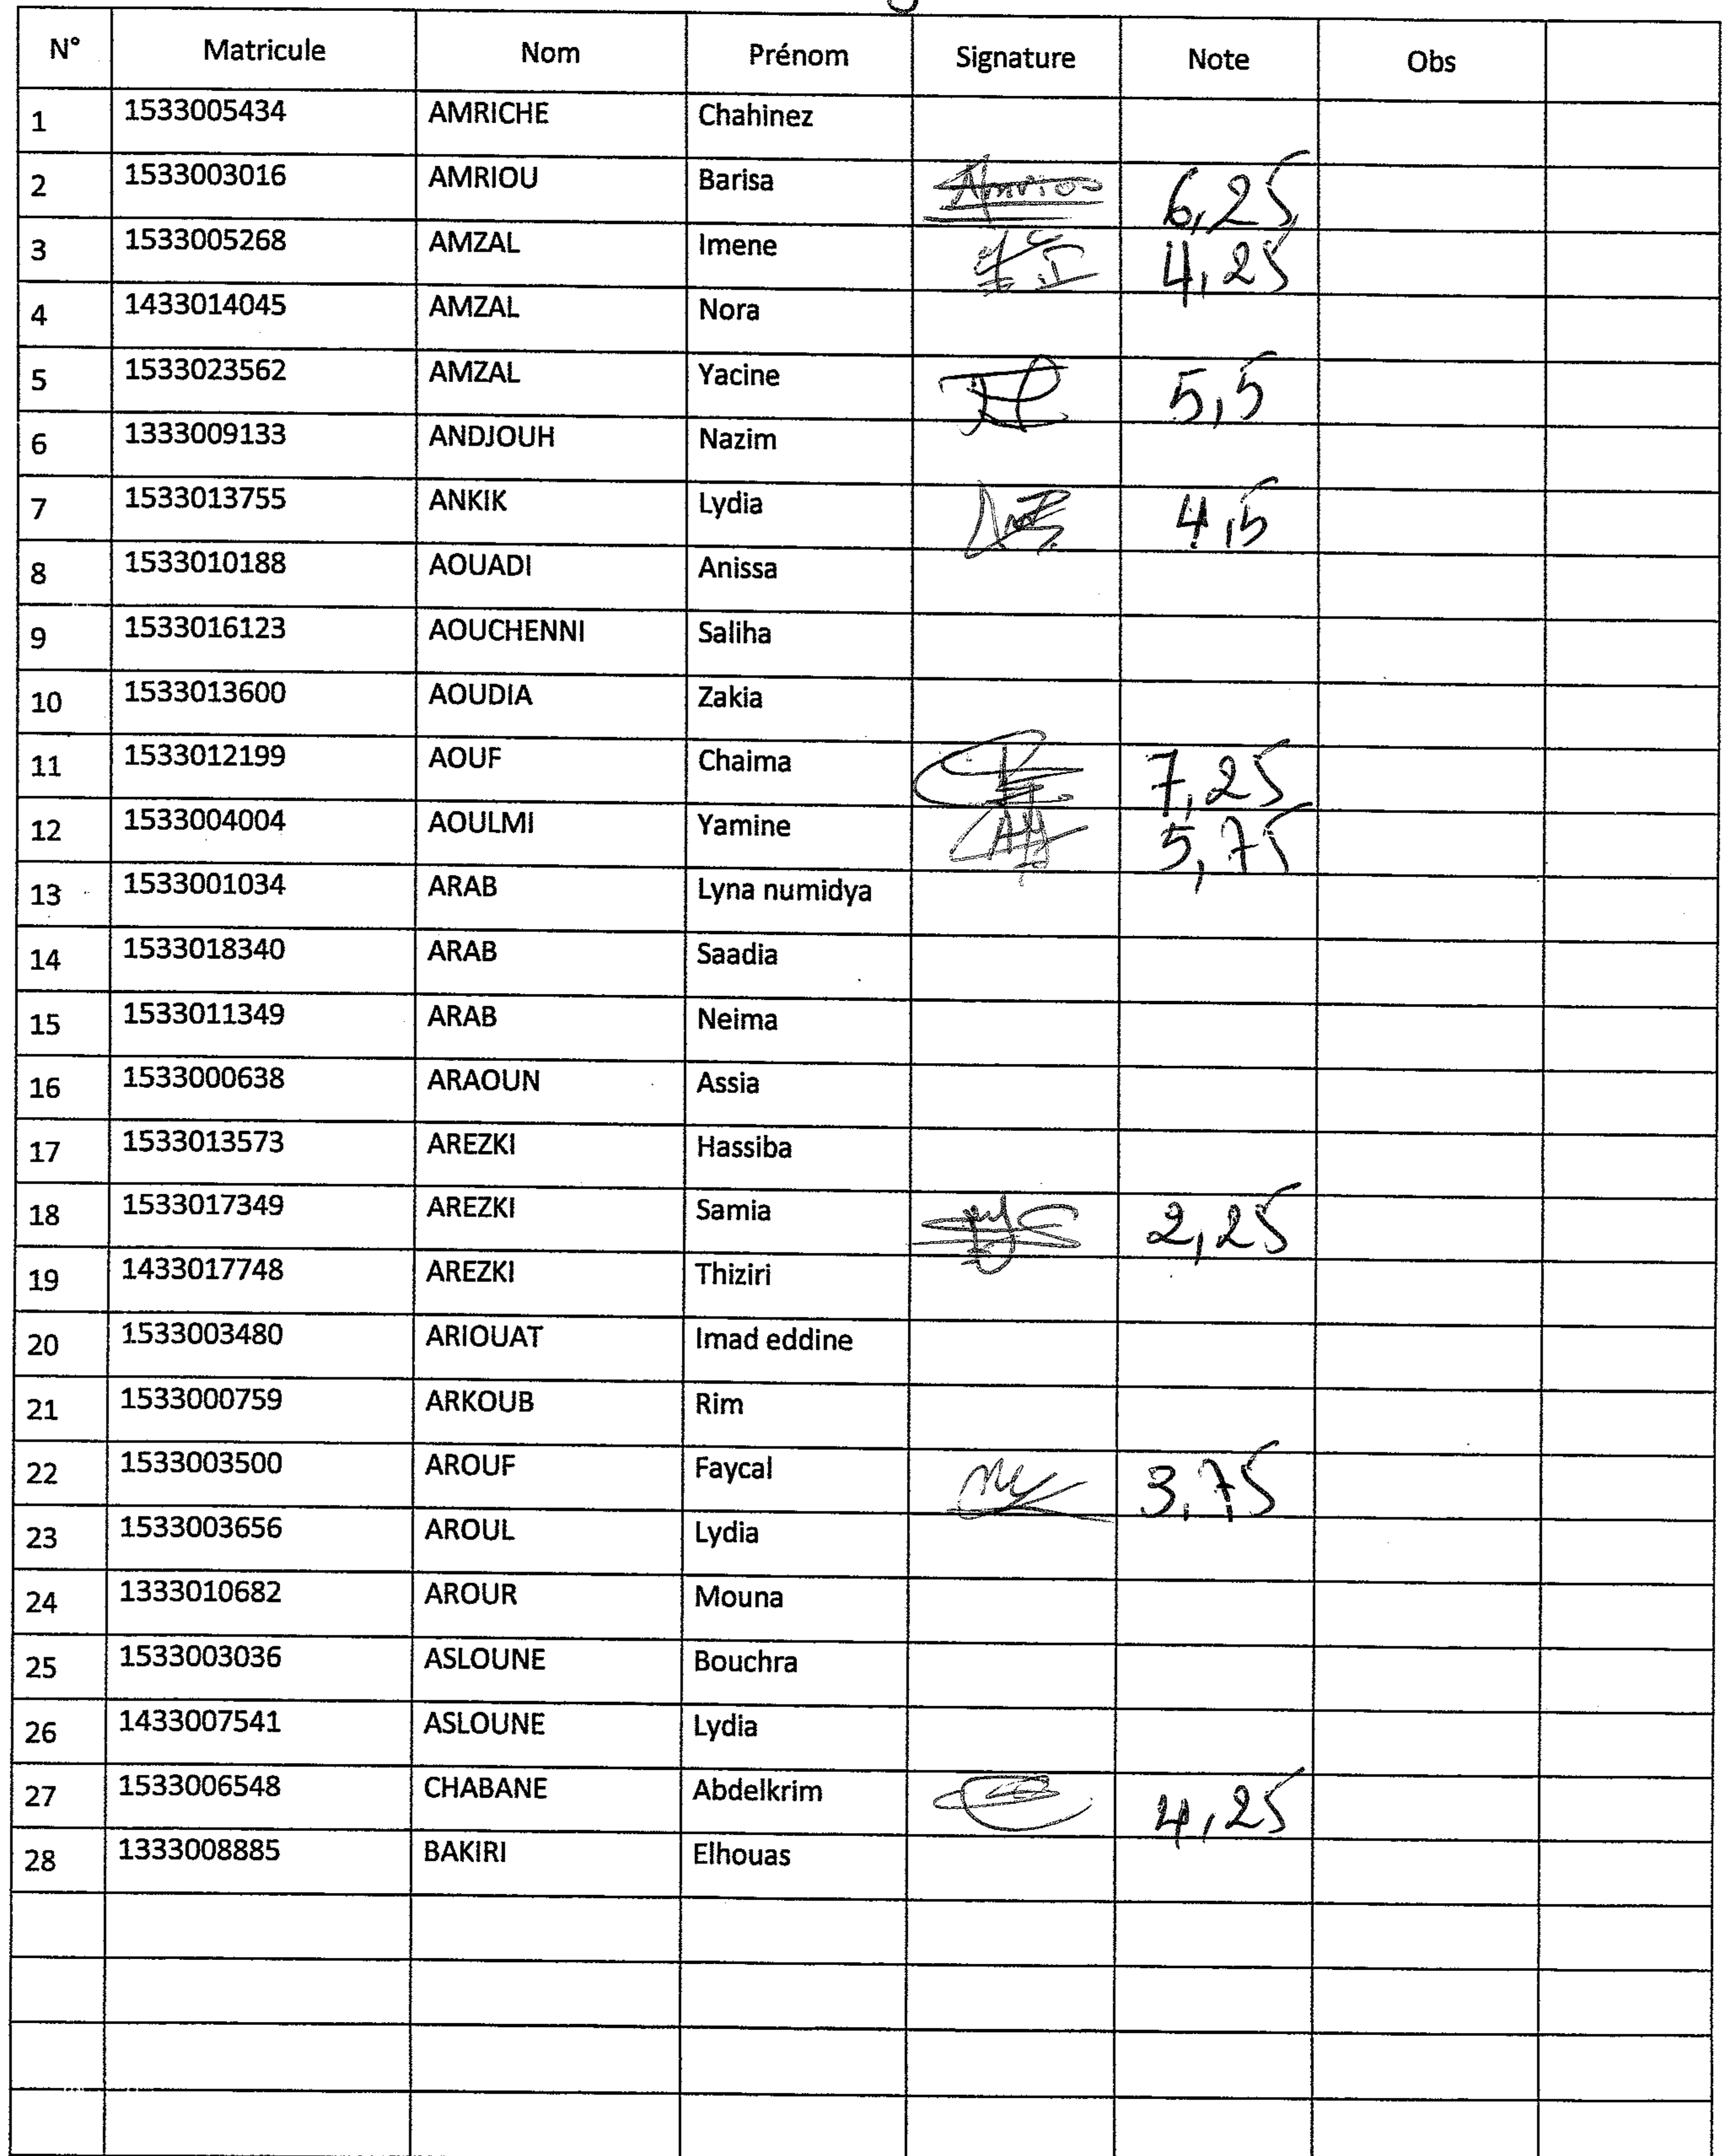 N° Matricule Nom Prénom Signature Note Obs
1 1533005434 AMRICHE Chahinez
2 1533003016 AMRIOU Barisa Amriou 6,25
3 1533005268 AMZAL Imene 4,25
4 1433014045 AMZAL Nora
5 1533023562 AMZAL Yacine 5,5
6 1333009133 ANDJOUH Nazim
7 1533013755 ANKIK Lydia 4,5
8 1533010188 AOUADI Anissa
9 1533016123 AOUCHENNI Saliha
10 1533013600 AOUDIA Zakia
11 1533012199 AOUF Chaima 7,25
12 1533004004 AOULMI Yamine 5,75
13 1533001034 ARAB Lyna numidya
14 1533018340 ARAB Saadia
15 1533011349 ARAB Neima
16 1533000638 ARAOUN Assia
17 1533013573 AREZKI Hassiba
18 1533017349 AREZKI Samia 2,25
19 1433017748 AREZKI Thiziri
20 1533003480 ARIOUAT Imad eddine
21 1533000759 ARKOUB Rim
22 1533003500 AROUF Faycal 3,75
23 1533003656 AROUL Lydia
24 1333010682 AROUR Mouna
25 1533003036 ASLOUNE Bouchra
26 1433007541 ASLOUNE Lydia
27 1533006548 CHABANE Abdelkrim 4,25
28 1333008885 BAKIRI Elhouas